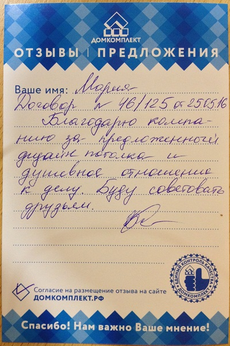 ДОМКОМПЛЕКТ
ОТЗЫВЫ | ПРЕДЛОЖЕНИЯ
Ваше имя: Мария
Договор № 46/125 от 250516
Благодарю компа-
нию за предложенный
дизайн потолка и
душевное отношение
к делу. Буду советовать
друзьям.
Согласие на размещение отзыва на сайте
ДОМКОМПЛЕКТ.РФ
Спасибо! Нам важно Ваше мнение!